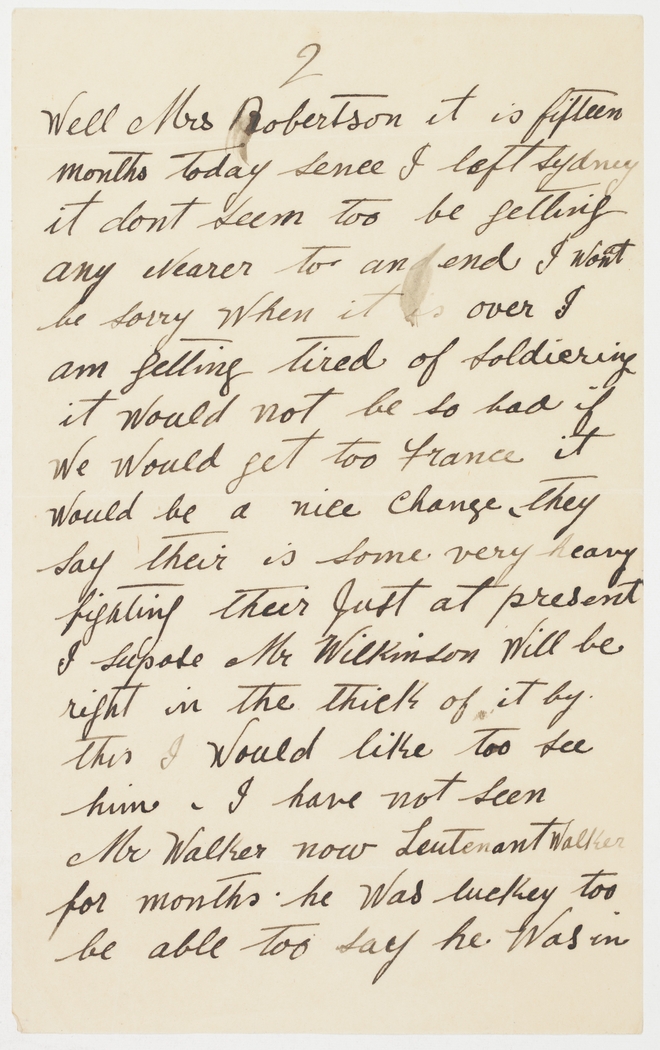 2
Well Mrs Robertson it is fifteen
months today sence I left Sydney
it dont seem too be getting
any Nearer to an end I wont
be sorry When it is over I
am getting tired of soldiering
it Would not be so bad if
We Would get too France it
Would be a nice change they
say their is some very heavy
fighting their Just at present
I supose Mr Wilkinson Will be
right in the thick of it by
this I Would like too see
him - I have not seen
Mr Walker now Leutenant Walker
for months. he Was luckey too
be able too say he Was in